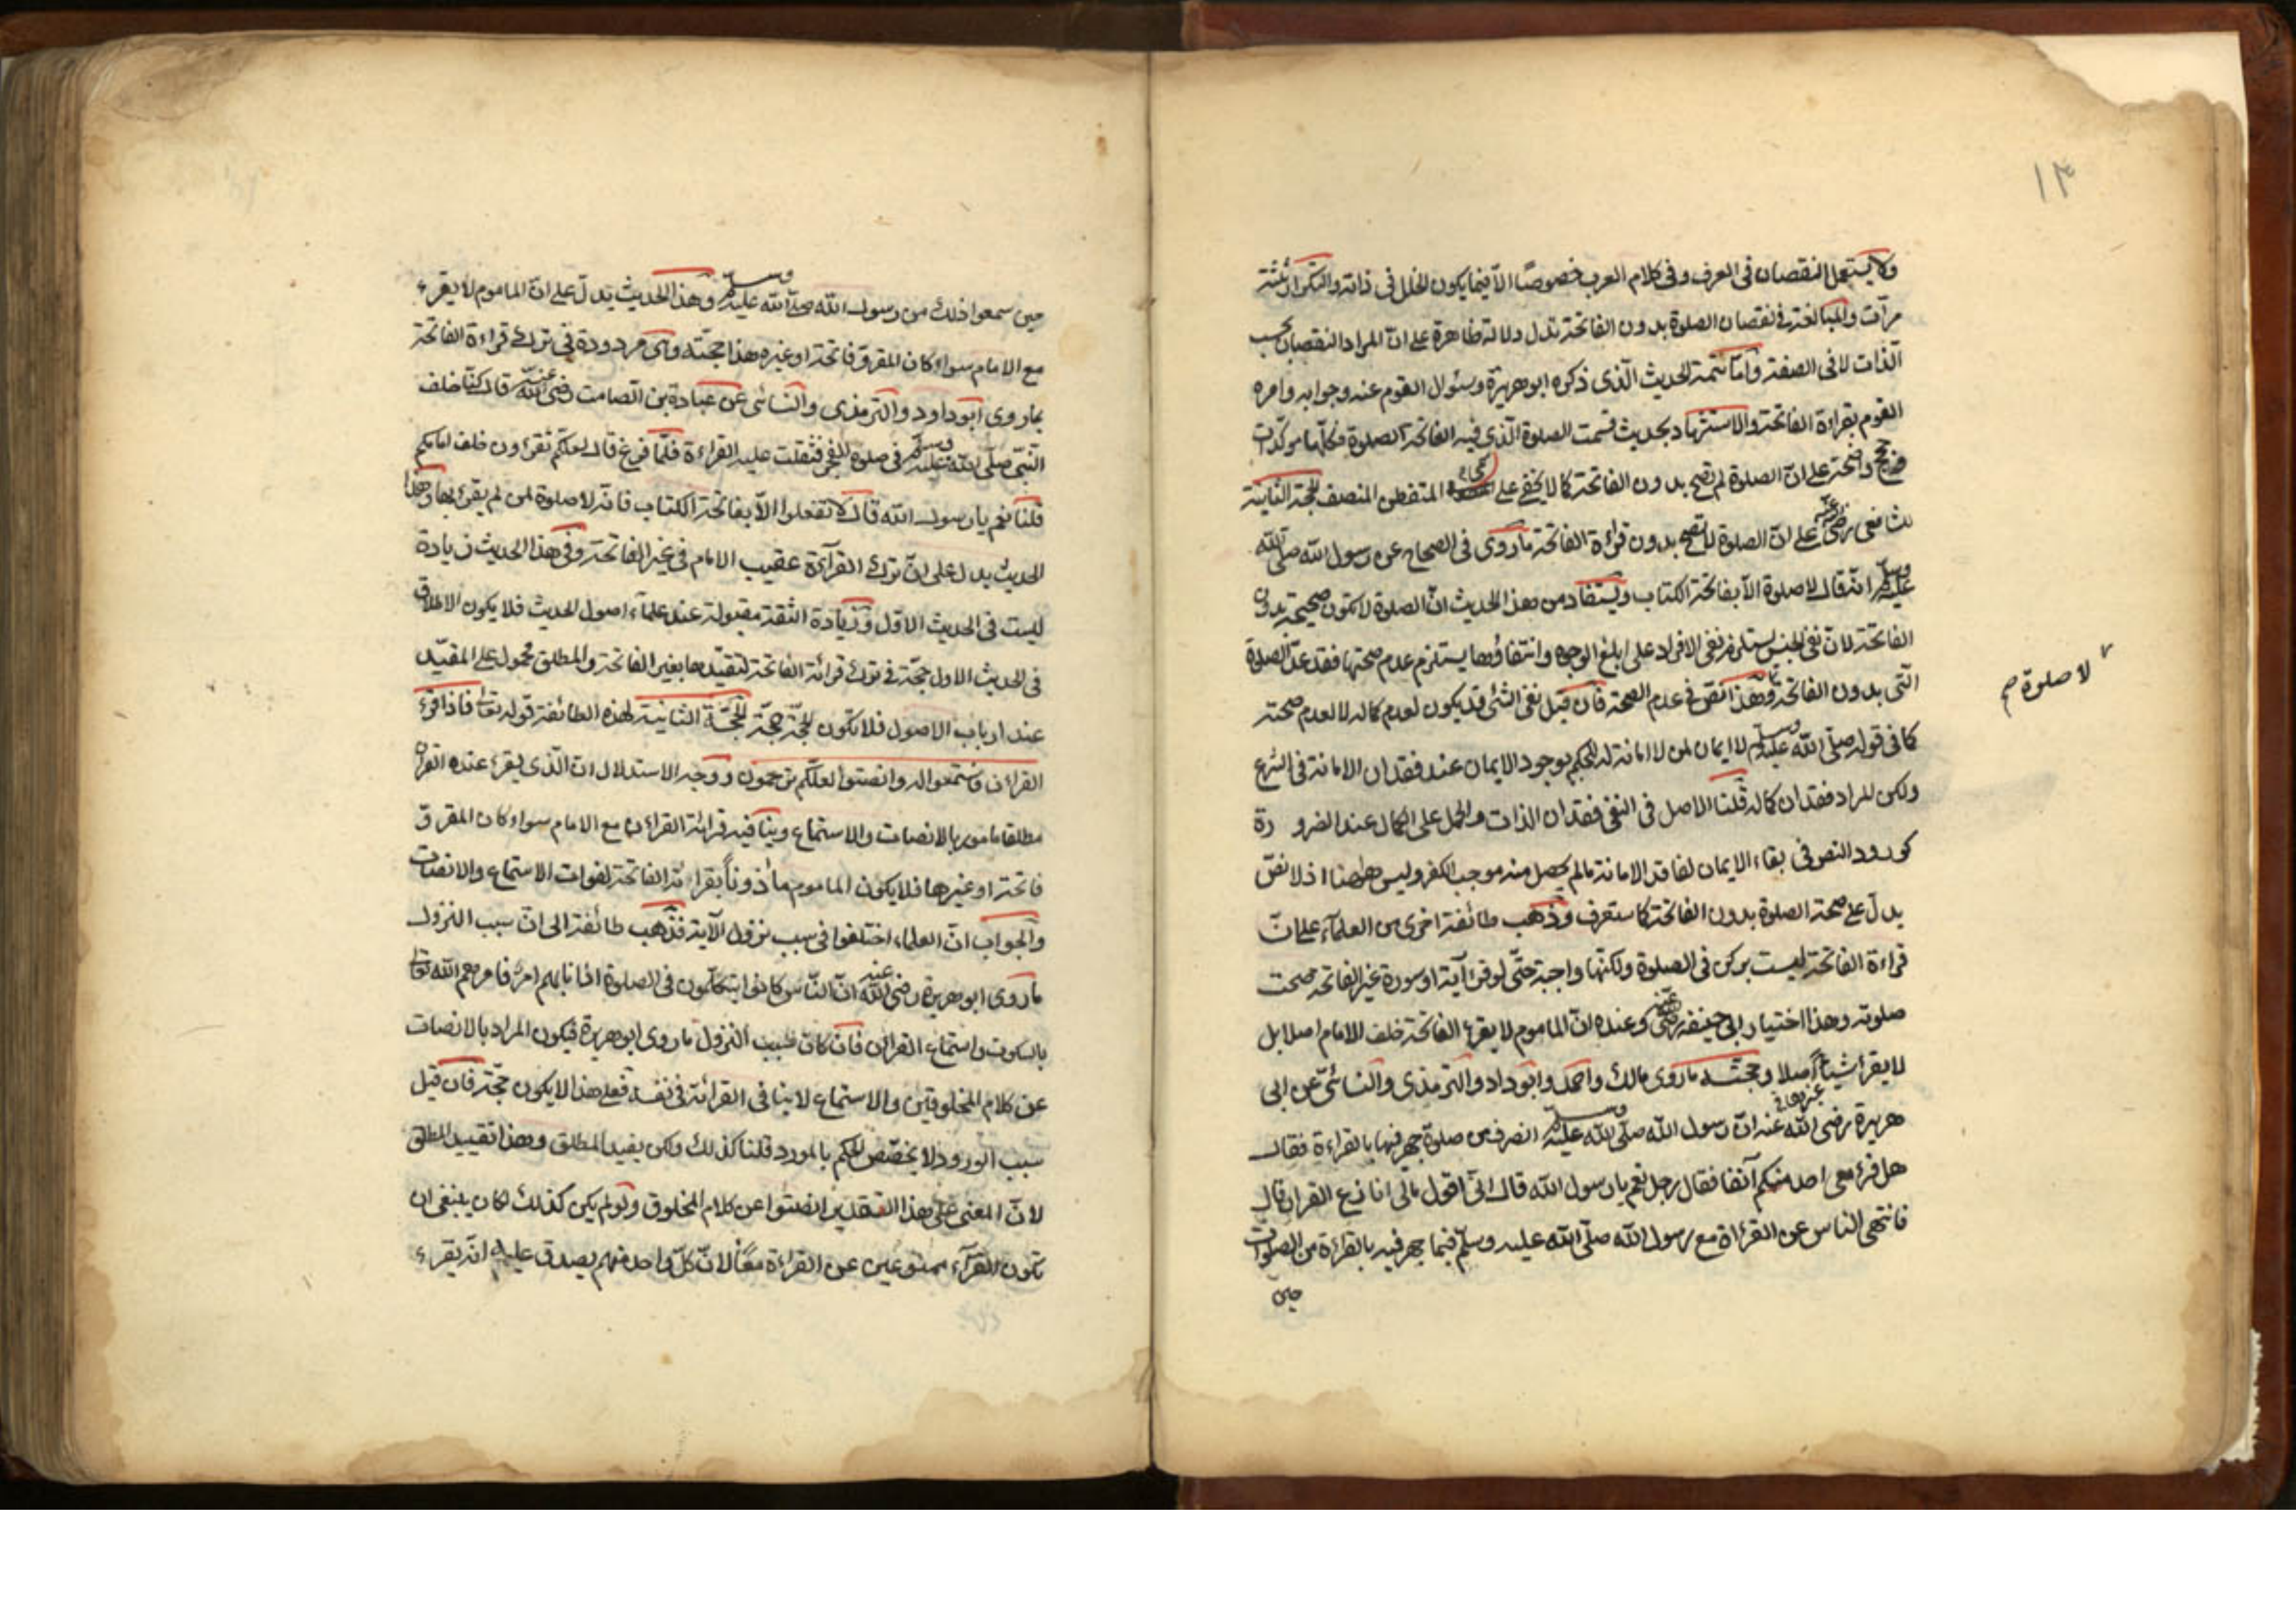 ١٣
ولا يستعمل النقصان في العرف وفي كلام العرب خصوصًا الّا فيما يكون الخلل في ذاته والتكرار ثلثة
مرآت والمبالغة في نقصان الصلوة بدون الفاتحة تدل دلالة ظاهرة على انّ المراد النقصان بحسب
الذات لا في الصفة وامّا تتمة الحديث الّذي ذكره ابو هريرة وسئول القوم عنه وجوابه وامره
القوم بقراءة الفاتحة والاستشهاد بحديث قسمت الصلوة الّذي فيه الفاتحة الصلوة فكلّها موكّدات
حجج واضحة على انّ الصلوة لم تصح بدون الفاتحة كما لا يخفى على المتفطن المنصف الحجة الثانية
للشافعي رضي عنه على انّ الصلوة لا تصح بدون قراءة الفاتحة ما روى في الصحاح عن رسول الله صلى الله
عليه وسلم انّه قال لا صلوة الّا بفاتحة الكتاب ويستفاد من هذا الحديث انّ الصلوة لا تكون صحيحة بدون
الفاتحة لانّ نفي الجنس يستلزم نفي الافراد على ابلغ الوجوه وانتفاؤها يستلزم عدم صحتها فقد عدّ الصلوة
لا صلوة صح
الّتي بدون الفاتحة وهذا نصّ في عدم الصحة فان قيل نفي الشئ قد يكون لعدم كماله لا لعدم صحته
كما في قوله صلّى الله عليه وسلم لا ايمان لمن لا امانة له للحكم بوجود الايمان عند فقدان الامانة في الشرع
ولكن المراد فقدان كماله قلنا الاصل في النفي فقدان الذات والحمل على الكمال عند الضرورة
كورود النص في بقاء الايمان لفاقد الامانة ما لم يحصل منه موجب الكفر وليس ههنا اذ لا نصّ
يدلّ على صحة الصلوة بدون الفاتحة كما ستعرف وذهب طائفة اخرى من العلماء على انّ
قراءة الفاتحة ليست بركن في الصلوة ولكنها واجبة حتّى لو قرأ آية او سورة غير الفاتحة صحت
صلوته وهذا اختيار ابي حنيفة رضي عنه وعنده انّ الماموم لا يقرء الفاتحة خلف الامام اصلا بل
لا يقرأ شيئًا اصلا وحجته ما روى مالك واحمد وابو داود والترمذي والنسائيّ عن ابي
هريرة رضي الله عنه انّ رسول الله صلّى الله عليه وسلم انصرف من صلوة جهر فيها بالقراءة فقال
هل قرء معي احد منكم آنفا فقال رجل نعم يا رسول الله قال انّي اقول ما لي انازع القران قال
فانتهى الناس عن القراءة مع رسول الله صلّى الله عليه وسلّم فيما جهر فيه بالقراءة من الصلوات
حين
حين سمعوا ذلك من رسول الله صلّى الله عليه وسلم وهذا الحديث يدلّ على انّ الماموم لا يقرء
مع الامام سواء كان المقروّ فاتحة او غيره هذا حجّته وهي مردودة في ترك قراءة الفاتحة
بما روى ابو داود والترمذي والنسائي عن عبادة بن الصامت رضي الله عنه قال كنّا خلف
النبيّ صلّى الله عليه وسلم في صلوة الفجر فثقلت عليه القراءة فلمّا فرغ قال لعلكم تقرؤن خلف امامكم
قلنا نعم يا رسول الله قال لا تفعلوا الّا بفاتحة الكتاب فانّه لا صلوة لمن لم يقرء بها وهذا
الحديث يدل على انّ ترك القراءة عقيب الامام في غير الفاتحة وفي هذا الحديث زيادة
ليست في الحديث الاوّل وزيادة الثقة مقبولة عند علماء اصول الحديث فلا يكون الاطلاق
في الحديث الاول حجّة في ترك قرائة الفاتحة لتقيّدها بغير الفاتحة والمطلق محمول على المقيّد
عند ارباب الاصول فلا تكون الحجّة حجّة الحجّة الثانية لهذه الطائفة قوله تعالى فاذا قرئ
القران فاستمعوا له وانصتوا لعلكم ترحمون ووجه الاستدلال ان الّذي يقرء عنده القران
مطلقا مامور بالانصات والاستماع وينافيه قرائة القران مع الامام سواء كان المقروّ
فاتحة او غيرها فلا يكون الماموم ماذونًا بقرائة الفاتحة لفوات الاستماع والانصات
والجواب انّ العلماء اختلفوا في سبب نزول الآية فذهب طائفة الى انّ سبب النزول
ما روى ابو هريرة رضي الله عنه انّ النّاس كانوا يتكلّمون في الصلوة اذا نابهم امر فامرهم الله تعالى
بالسكوت واستماع القران فان كان سبب النزول ما روى ابو هريرة فيكون المراد بالانصات
عن كلام المخلوقين والاستماع لا ينافي القرائة في نفسه فعلى هذا لا يكون حجّة فان قيل
سبب الورود لا يخصّص الحكم بالمورد قلنا كذلك ولكن يقيد المطلق وهذا تقييد المطلق
لانّ المعنى على هذا التقدير انصتوا عن كلام المخلوق ولو لم يكن كذلك لكان ينبغي ان
تكون القرّاء ممنوعين عن القراءة معًا لانّ كلّ واحد منهم يصدق عليه انّه يقرء